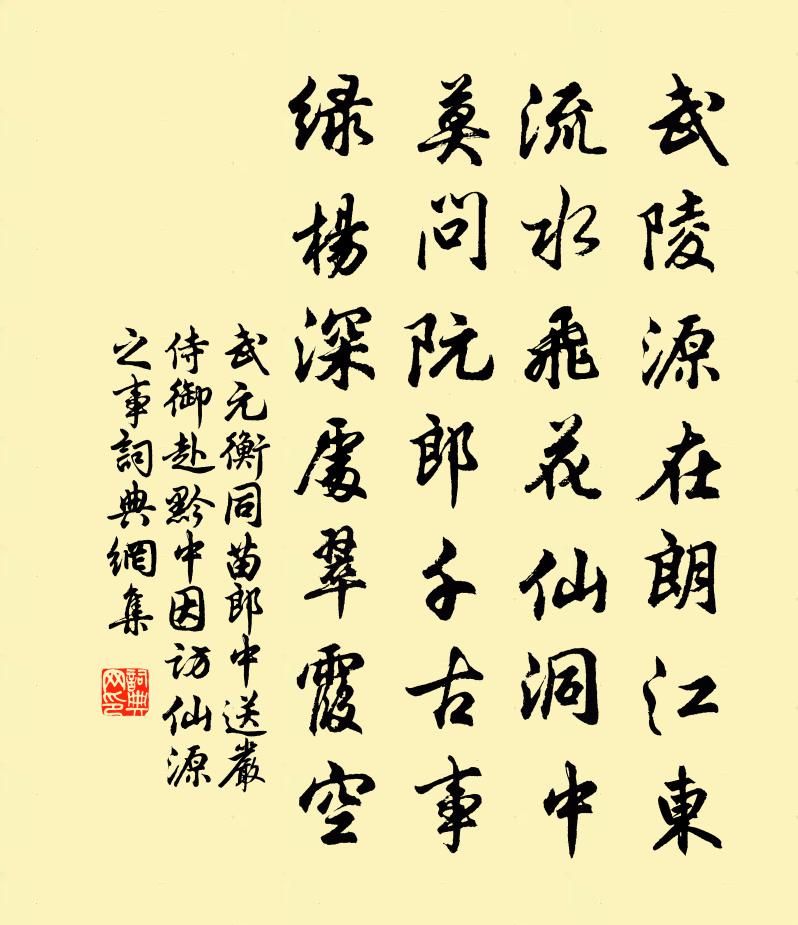 武陵源在朗江東
流水飛花仙洞中
莫問阮郎千古事
緑楊深處翠霞空
武元衡同苗郎中送嚴
侍御赴黔中因訪仙源
之事詞典網集
詞典网印